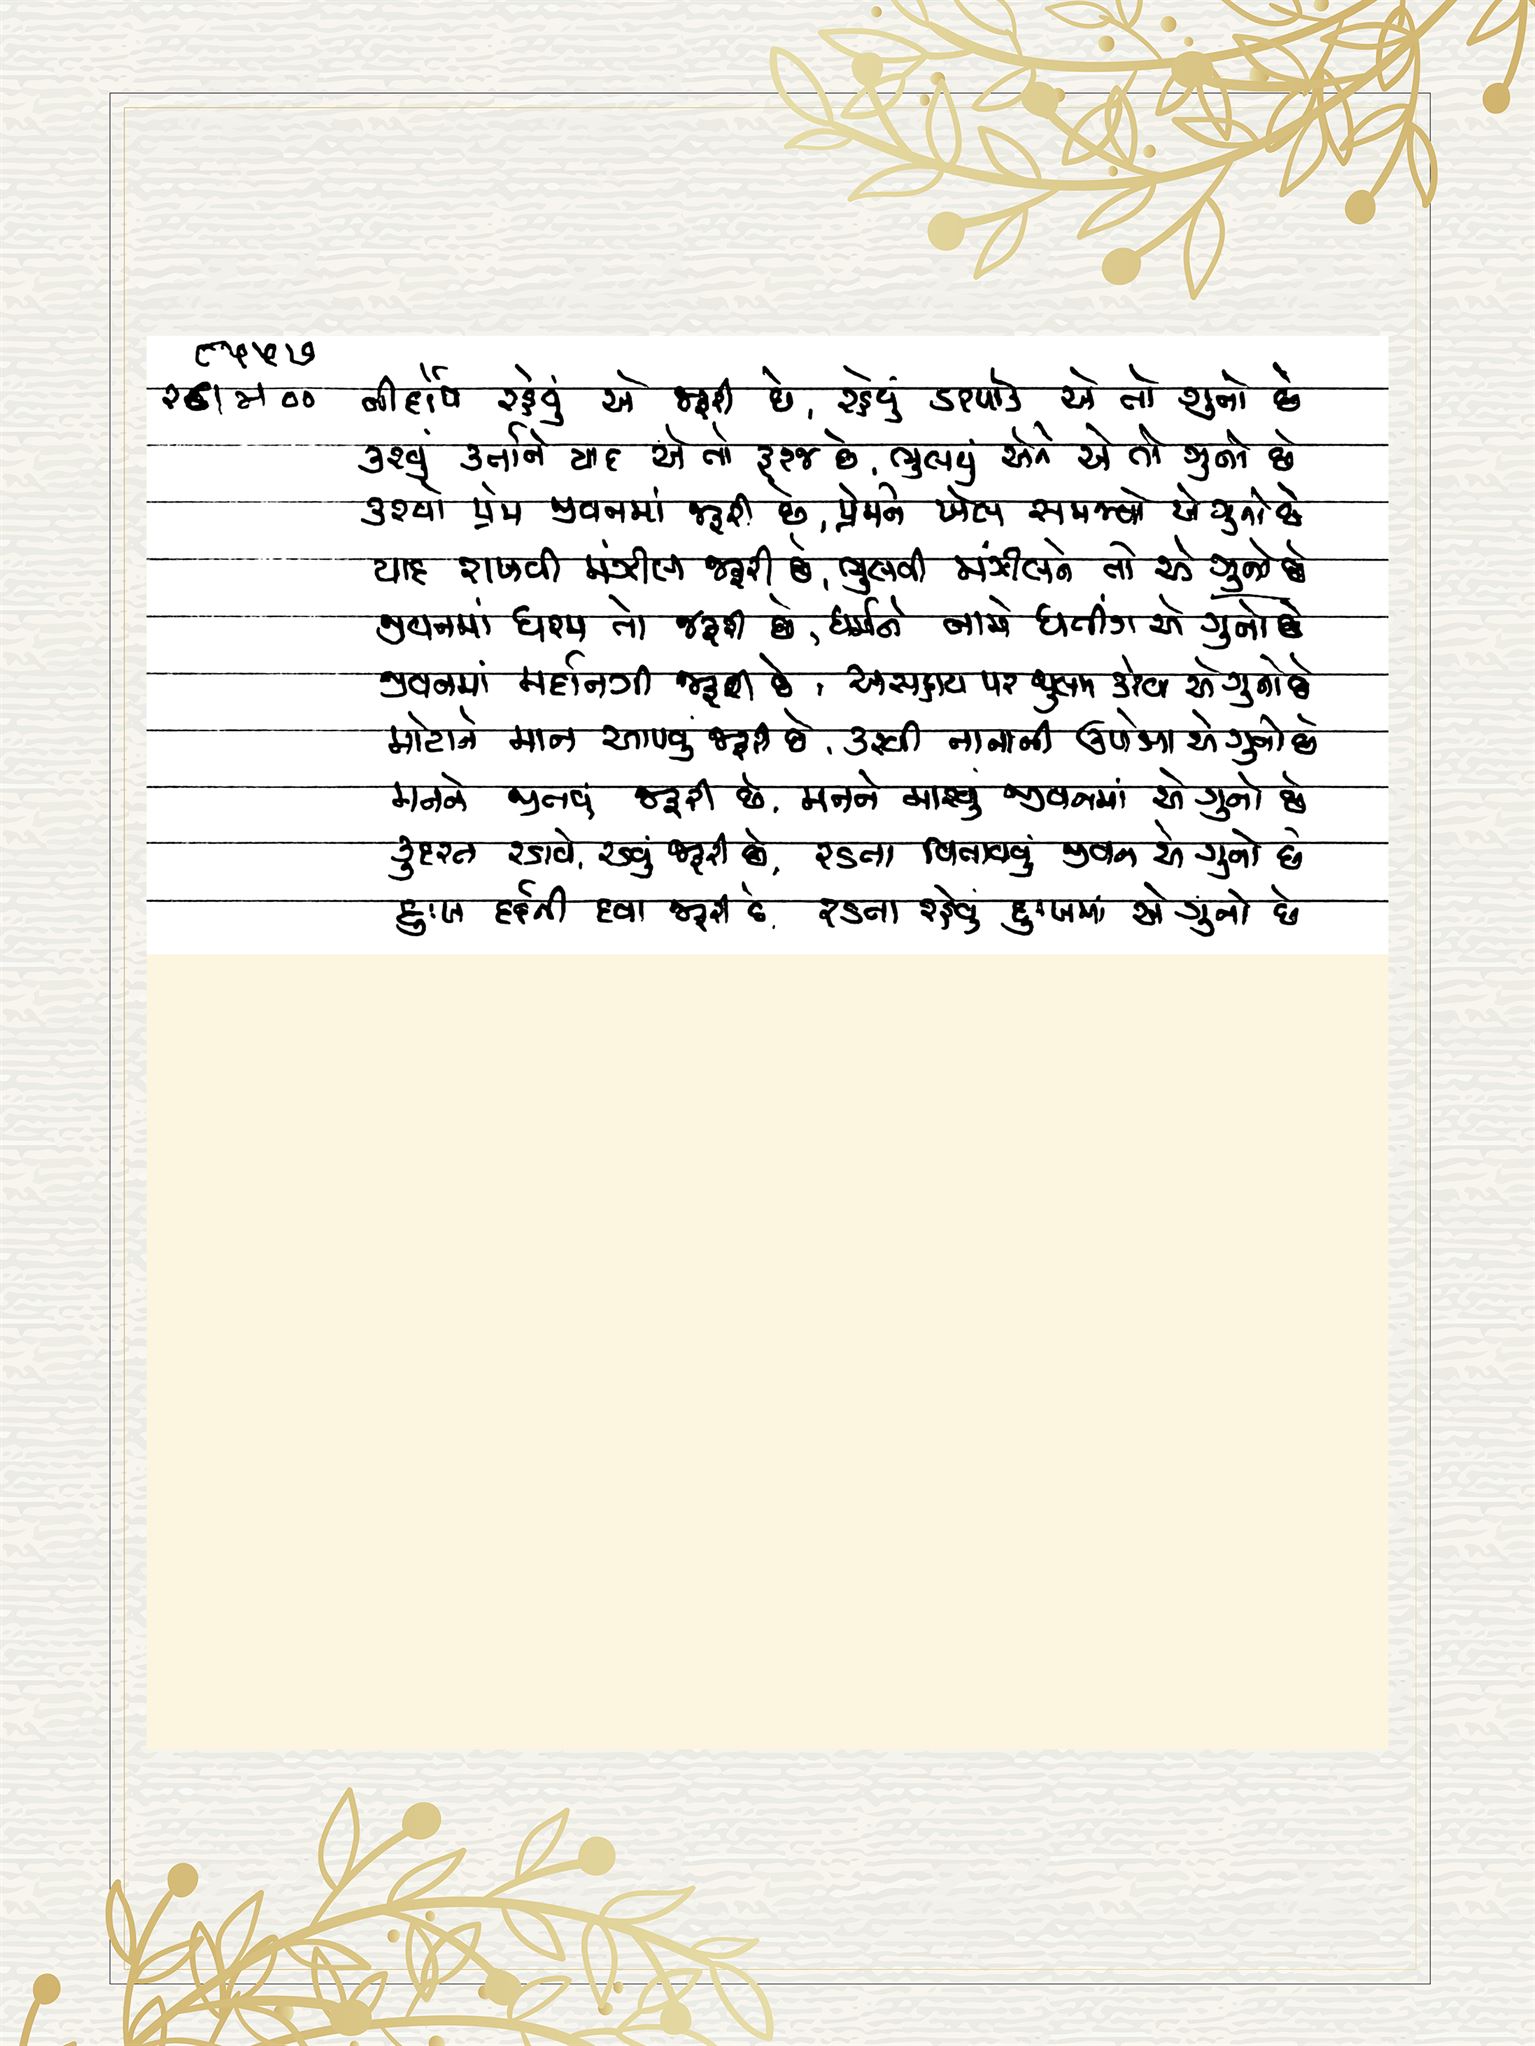 ૯૫૫૭
નીર્દોષ રહેવું એ જરૂરી છે, રહેવું ડરપોક એ તો ગુનો છે
કરવું કર્તાને યાદ એ તો ફરજ છે, ભુલવું એને એ તો ગુનો છે
કરવો પ્રેમ જીવનમાં જરૂરી છે, પ્રેમને ખેલ સમજવો એ ગુનો છે
યાદ રાખવી મંઝીલ જરૂરી છે, ભુલવી મંઝીલને તો એ ગુનો છે
જીવનમાં ધરમ તો જરૂરી છે, ધર્મને નામે ધતીંગ એ ગુનો છે
જીવનમાં મર્દાનગી જરૂરી છે, અસહાય પર જુલમ કરવા એ ગુનો છે
મોટાને માન આપવું જરૂરી છે, કરવી નાનાની ઉપેક્ષા એ ગુનો છે
મનને જીતવું જરૂરી છે, મનને મારવું જીવનમાં એ ગુનો છે
કુદરત રડાવે, રડવું જરૂરી છે, રડતા વિતાવવું જીવન એ ગુનો છે
દુઃખ દર્દની દવા જરૂરી છે, રડતા રહેવું દુઃખમાં એ ગુનો છે